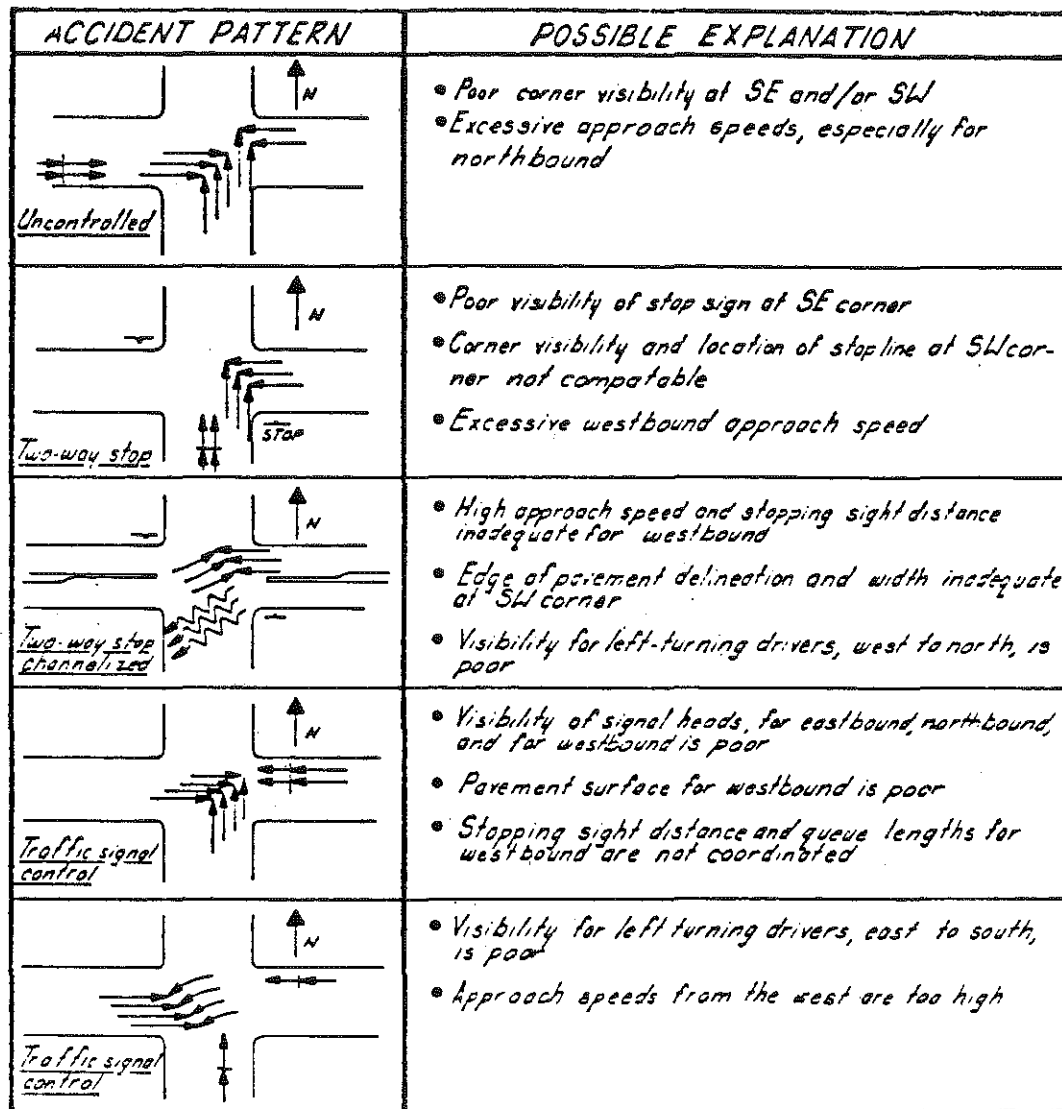 ACCIDENT PATTERN
POSSIBLE EXPLANATION
N
Uncontrolled
• Poor corner visibility at SE and/or SW
• Excessive approach speeds, especially for
northbound
N
STOP
Two-way stop
• Poor visibility of stop sign at SE corner
• Corner visibility and location of stopline at SW cor-
ner not compatable
• Excessive westbound approach speed
N
Two-way stop
channelized
• High approach speed and stopping sight distance
inadequate for westbound
• Edge of pavement delineation and width inadequate
at SW corner
• Visibility for left-turning drivers, west to north, is
poor
N
Traffic signal
control
• Visibility of signal heads, for eastbound, northbound,
and for westbound is poor
• Pavement surface for westbound is poor
• Stopping sight distance and queue lengths for
westbound are not coordinated
N
Traffic signal
control
• Visibility for left turning drivers, east to south,
is poor
• Approach speeds from the west are too high